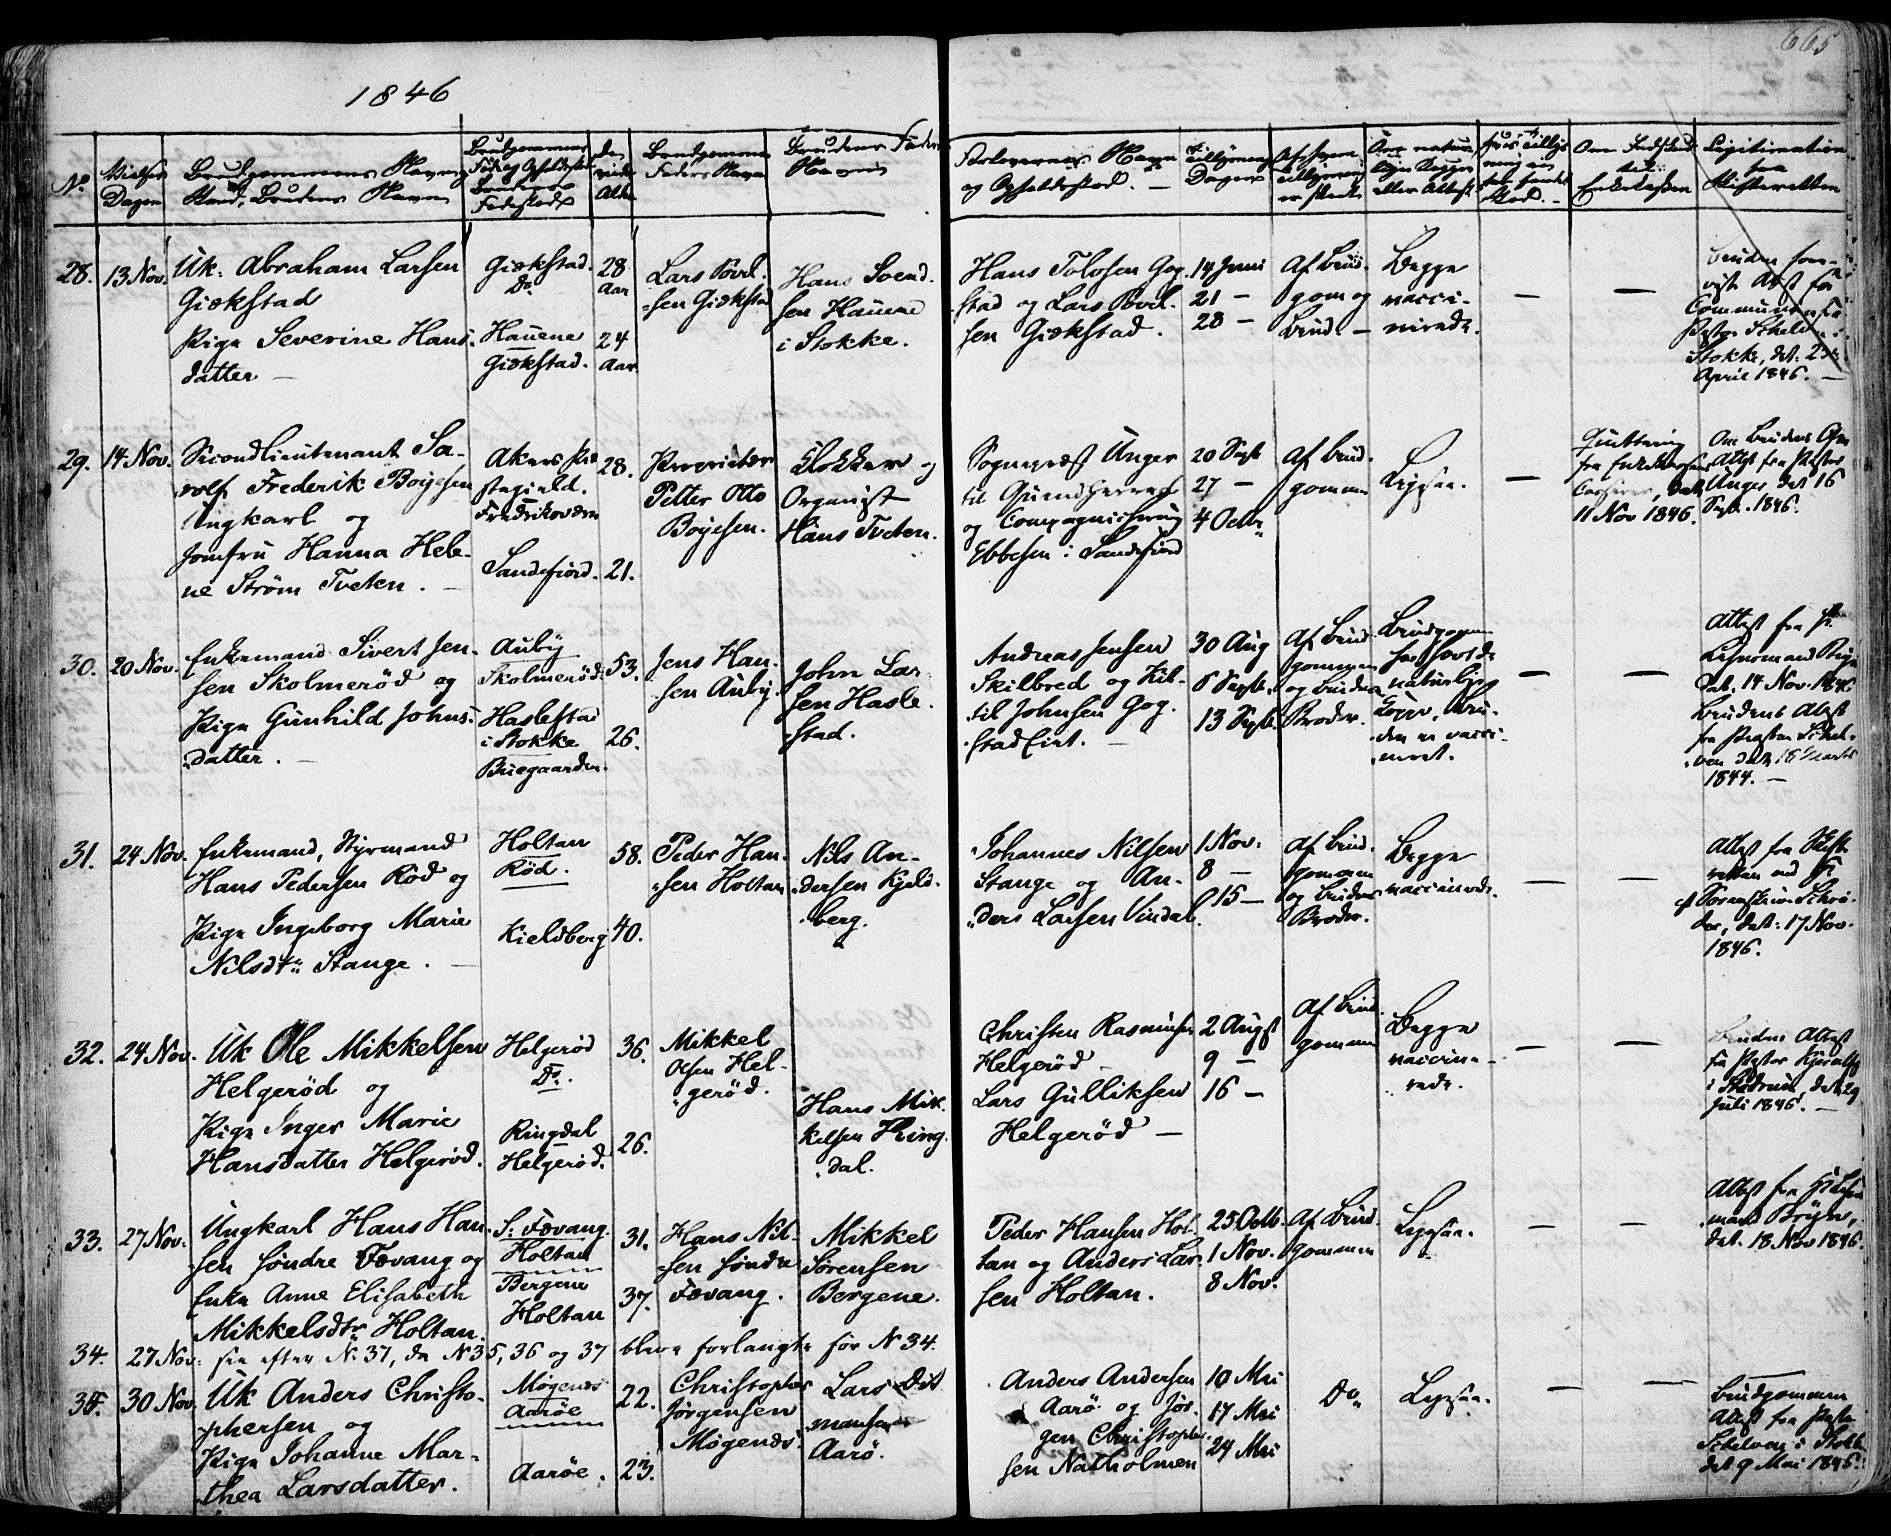 1846
665
No
Vielses Dagen
Brudgommens Navn og Stand, Brudens Navn
Brudgommens Føde og Opholdssted Brudens Fødested
Brudgommens Faders Navn
Brudens Faders Navn
Forlovernes Navn og Opholdssted. —
Tillysnings Dager
28. 13 Nov.
Uk. Abraham Larsen
Giekstad
Pige Severine Hans-
datter —
Giekstad.
Do
Hauene
Giekstad.
28
Aar
24
Aar
Lars Povel-
sen Giekstad
Hans Svend-
sen Hauene
i Stokke.
Hans Tolvsen Gog-
stad og Lars Povel-
sen Giekstad.
14 Juni
21 —
28 —
Af Brud-
gom og
Brud. —
Begge
vacci-
nerede.
—
—
Stokke, dat: 23
April 1846. —
29. 14 Nov.
Secondlieutenant Ca-
rolf Frederik Boyesen
Ungkarl og
Jomfru Hanna Hele-
ne Strøm Tveten. —
Akers Præ-
stegield.
Frederiksværn
Sandefiord.
28.
21.
Proprietær
Petter Otto
Boyesen.
Klokker og
Organist
Hans Tveten.
Sognepræst Unger
til
og Compagniechirurg
Ebbesen i Sandefiord
20 Septb
27 —
4 Octbr
Af Brud-
gommen
Ligesaa.
—
Quittering
fra Enkekassens
Casserer, dat.
11 Nov 1846.
Om Brudens
Attest fra Pastor
Unger dat 16
Septb. 1846.
30. 20 Nov.
Enkemand Sivert Jen-
sen Skolmerød og
Pige Gunhild Johns-
datter. —
Auby
Skolmerød.
Haslestad
i Stokke
Bruegaarden.
53.
26.
Jens Han-
sen Auby.
John Lar-
sen Hasle-
stad.
Andreas Jensen
Skilbred og Kit-
til Johnsen Gog-
stad Eiet. —
30 Aug
6 Septb.
13 Septb.
Af Brud-
gommen
og Brudens
Broder.
Brudgommen
har havt de
naturlige
Kopper, Bru-
den er vacci-
neret.
—
—
Attest fra
Lehnsmand Bryn
dat. 14 Nov. 1846
Brudens Attest
fra Pastor Schel-
ven dat. 18 Marts
1844. —
31. 24 Nov.
Enkemand, Styrmand
Hans Pedersen Rød og
Pige Ingeborg Marie
Nilsdtr Stange. —
Holtan
Rød.
Kieldberg
58.
40.
Peder Han-
sen Holtan
Nils An-
dersen Kjeld-
berg.
Johannes Nilsen
Stange og An-
ders Larsen Vindal.
1 Nov:
8 —
15 —
Af Brud-
gommen
og Brudens
Broder.
Begge
vaccinerede.
—
—
Attest fra Skifte-
retten ved
Sorenskriver Schrø-
der, dat: 17 Nov.
1846.
32. 24 Nov.
Uk Ole Mikkelsen
Helgerød og
Pige Inger Marie
Hansdatter Helgerød.
Helgerød
Do.
Ringdal
Helgerød.
36.
26.
Mikkel
Olsen Hel-
gerød.
Hans Mik-
kelsen Ring-
dal.
Christen Rasmussen
Helgerød —
Lars Gulliksen
Helgerød —
2 Augst
9 —
16 —
Af Brud-
gommen
Begge
vaccine-
rede.
—
—
Brudens Attest
fra Pastor
i dat 29
Juli 1846. —
33. 27 Nov.
Ungkarl Hans Han-
sen Søndre Fevang og
Enke Anne Elisabeth
Mikkelsdtr Holtan.
S. Fevang.
Holtan
Bergene
Holtan
31.
37.
Hans Nil-
sen Søndre
Fevang.
Mikkel
Sørensen
Bergene.
Peder Hansen Hol-
tan og Anders Lar-
sen Holtan.
25 Octb.
1 Nov.
8 Nov.
Af Brud-
gommen
Ligesaa.
—
—
Attest fra
mand Bryn,
dat. 18 Nov 1846.
34. 27 Nov: see efter No 37, da N 35, 36 og 37 bleve forlangte før N 34.
35. 30 Nov.
Uk Anders Christo-
phersen og
Pige Johanne Mar-
thea Larsdatter.
Møgenæs
Aarøe
Aarøe.
22.
23.
Christopher
Jørgensen
Møgenæs.
Lars Dit-
mansen
Aarø.
Anders Andersen
Aarø og Jør-
gen Christopher-
sen Natholmen
10 Mai
17 Mai
24 Mai
Do
Ligesaa.
—
—
Brudgommens
Attest fra Pastor
Schelven i Stokke
dat 9 Mai 1846.